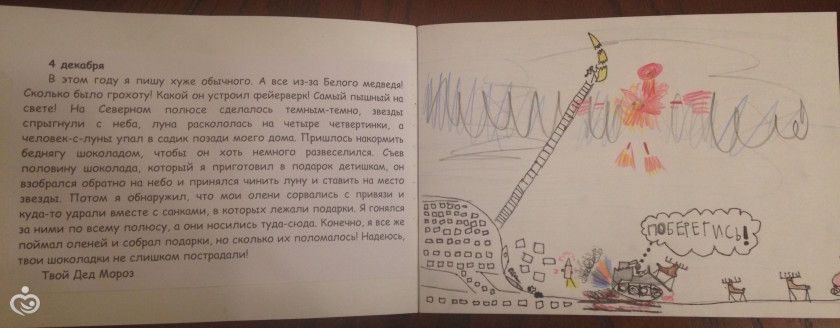 4 декабря
В этом году я пишу хуже обычного. А все из-за Белого медведя!
Сколько было грохоту! Какой он устроил фейерверк! Самый пышный на
свете! На Северном полюсе сделалось темным-темно, звезды
спрыгнули с неба, луна раскололась на четыре четвертинки, а
человек-с-луны упал в садик позади моего дома. Пришлось накормить
беднягу шоколадом, чтобы он хоть немного развеселился. Съев
половину шоколада, который я приготовил в подарок детишкам, он
взобрался обратно на небо и принялся чинить луну и ставить на место
звезды. Потом я обнаружил, что мои олени сорвались с привязи и
куда-то удрали вместе с санками, в которых лежали подарки. Я гонялся
за ними по всему полюсу, а они носились туда-сюда. Конечно, я все же
поймал оленей и собрал подарки, но сколько их поломалось! Надеюсь,
твои шоколадки не слишком пострадали!
Твой Дед Мороз
ПОБЕРЕГИСЬ!